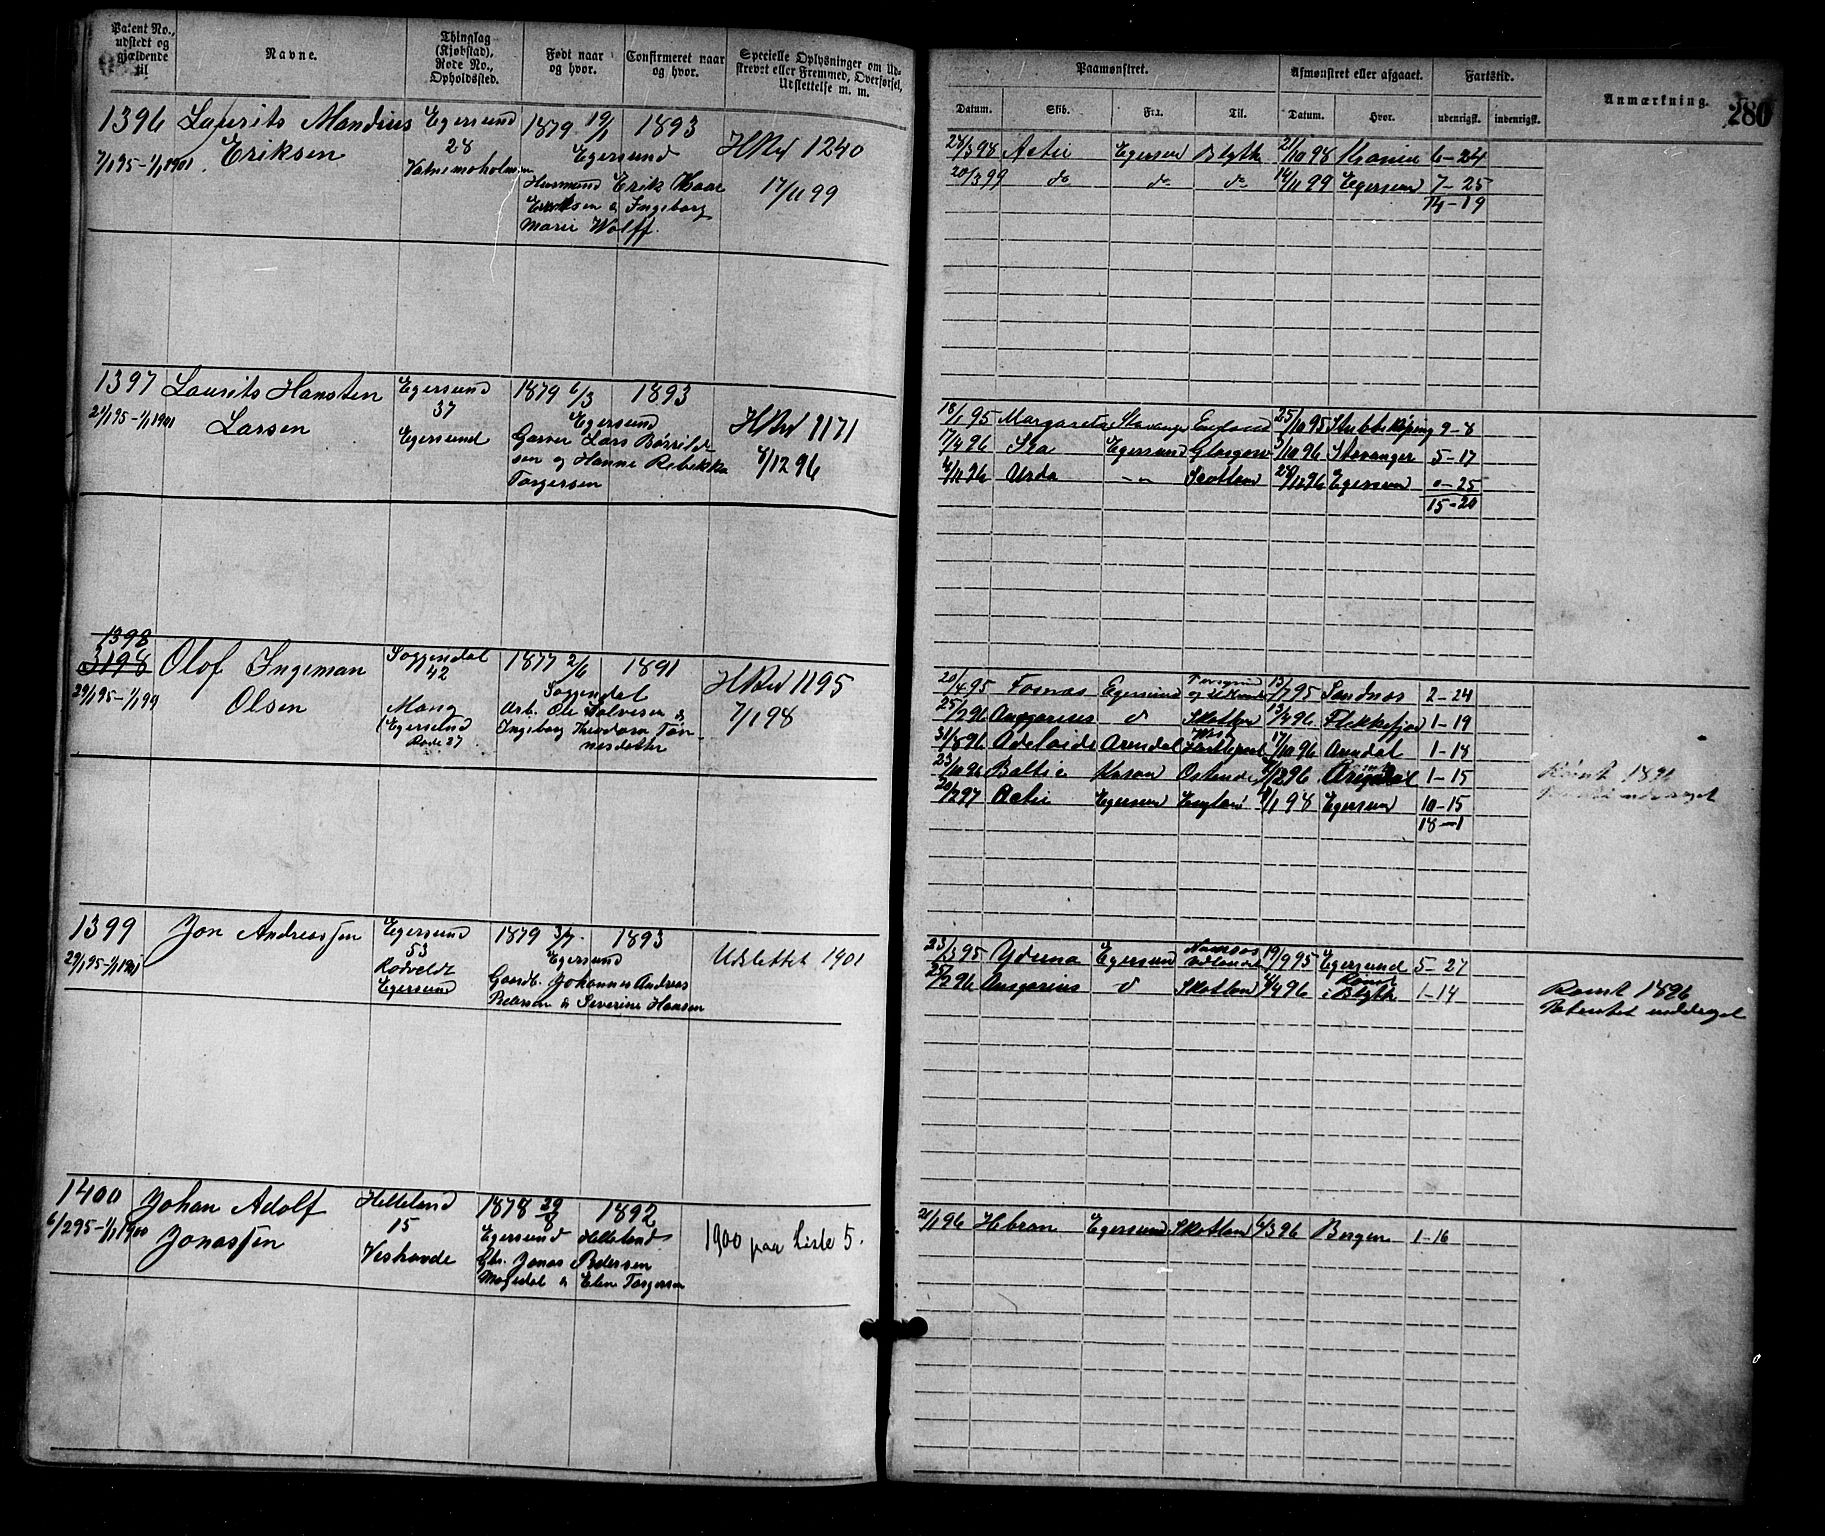 Patent No., udstedt og gjældende til
Navne.
Thinglag (Kjøbstad), Rode No., Opholdssted.
Født naar og hvor.
Confirmeret naar og hvor.
Specielle Oplysninger om Udstrevet eller Fremmed, Overførsel, Udslettelse m. m.
Paamønstret.
Afmønstret eller afgaaet.
Fartstid.
Anmærkning.
280
Datum. Skib. Fra. Til. Datum. Hvor. udenrigst. indenrigst.
1396 Laurits Mandius Egersund 1879 19/1 1893
Eriksen 28 Egersund HRul 1240
7/1 95-1/1 1901. Vatnemoholmen
Husmand Erik Haar 17/11 99
Eriksen & Ingeborg
Marie Wolff.
24/3 98 Actie Egersun Blyth 21/10 98 6-24
20/3 99 do do do 14/11 99 Egersun 7-25
14-19
1397 Laurits Hansten Egersund 1879 6/3 1893
21/1 95-1/1 1901 Larsen 37 Egersund HRul 1171
Egersund Garver Lars Børrild-
sen og Hanne Rebekka 4/12 96
Torgersen
18/1 95 Margareta Stavanger England 25/10 95 Stubbekøping 9-8
7/4 96 Ika Egersund Glasgow 3/10 96 Stavanger 5-17
4/11 96 Urda -"- Scotland 28/12 96 Egersun 0-25
15-20
1398
3198 Olof Ingeman Soggendal 1877 2/6 1891
29/1 95-1/1 99 Olsen 42 Soggendal HRul 1195
Mong Arb. Ole Salvesen & 7/1 98
(Egersund Ingeborg Theodora Tøn-
Rode 27 nesdatter
20/4 95 Fosnæs Egersund 13/7 95 Sandnæs 2-24
25/2 96 Ansgarius d Skotlan 13/4 96 Flekkefjord 1-19
31/8 96 Adelaide Arendal West Hartlepool 17/10 96 Arendal 1-18
23/10 96 Baltic Ostende /12 96 1-15
20/2 97 Actie Egersun England 4/1 98 Egersun 10-15
18-1
Rømt 1896
1399 Jon Andreassen Egersund 1879 3/7. 1893
29/1 95-1/1 1901 53 Egersund Udslettet 1901
Rodveldt Gaardb. Johannes Andreas
Egersund Pedersen & Severine Hansen
23/3 95 Yderna Egersund Namsos Udlandet 19/9 95 Egersund 5-27
25/2 96 Ansgarius d Skotlan /4 96 Rømt i Blyth 1-14
Rømt 1896
Patentet inddraget
1400 Johan Adolf Helleland 1878 29/8 1892
6/2 95-1/1 1900 Jonassen 15 Egersund Helleland 1900 paa Liste 5.
Veshovde Gbr. Jonas Pedersen
Mogedal & Elen Torgersen
21/1 96 Hebron Egersund Skotlan /3 96 Bergen 1-16